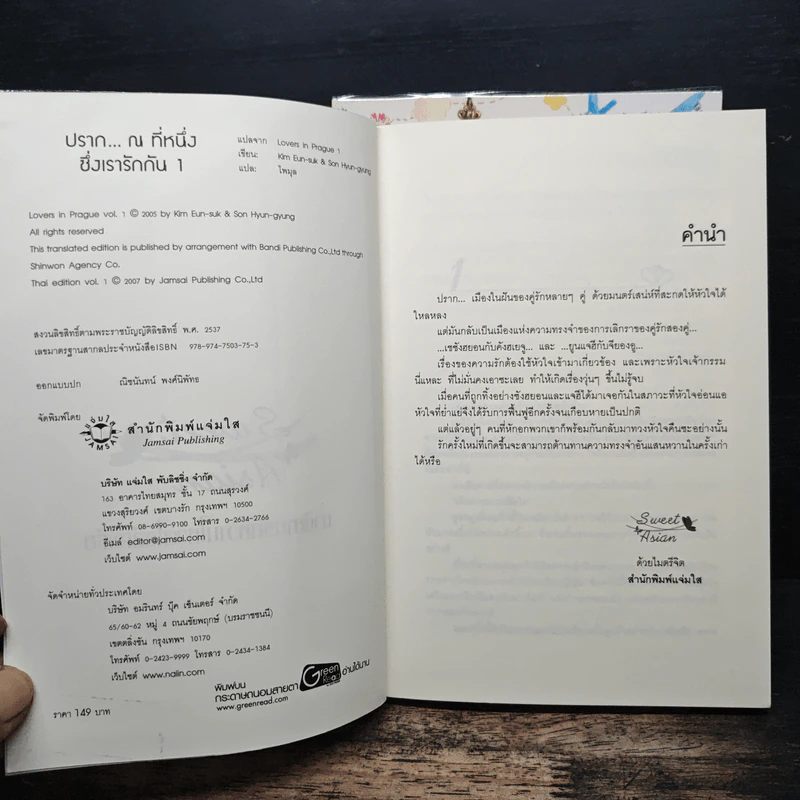 ปราก... ณ ที่หนึ่ง
ซึ่งเรารักกัน 1
แปลจาก Lovers in Prague 1
เขียน: Kim Eun-suk & Son Hyun-gyung
แปล: ไพมุล
Lovers in Prague vol. 1 © 2005 by Kim Eun-suk & Son Hyun-gyung
All rights reserved
This translated edition is published by arrangement with Bandi Publishing Co.,Ltd through
Shinwon Agency Co.
Thai edition vol. 1 © 2007 by Jamsai Publishing Co.,Ltd
สงวนลิขสิทธิ์ตามพระราชบัญญัติลิขสิทธิ์ พ.ศ. 2537
เลขมาตรฐานสากลประจำหนังสือISBN 978-974-7503-75-3
ออกแบบปก ณิชนันทน์ พงศ์นิพัทธ
จัดพิมพ์โดย
แจ่มใส
JAMSAI
สำนักพิมพ์แจ่มใส
Jamsai Publishing
บริษัท แจ่มใส พับลิชชิ่ง จำกัด
163 อาคารไทยสมุทร ชั้น 17 ถนนสุรวงศ์
แขวงสุริยวงศ์ เขตบางรัก กรุงเทพฯ 10500
โทรศัพท์ 08-6990-9100 โทรสาร 0-2634-2766
อีเมล์ editor@jamsai.com
เว็บไซต์ www.jamsai.com
จัดจำหน่ายทั่วประเทศโดย
บริษัท อมรินทร์ บุ๊ค เซ็นเตอร์ จำกัด
65/60-62 หมู่ 4 ถนนชัยพฤกษ์ (บรมราชชนนี)
เขตตลิ่งชัน กรุงเทพฯ 10170
โทรศัพท์ 0-2423-9999 โทรสาร 0-2434-1384
เว็บไซต์ www.naiin.com
พิมพ์บน
กระดาษถนอมสายตา
www.greenread.com
Green
Read
อ่านได้นาน
ราคา 149 บาท
คำนำ
ปราก... เมืองในฝันของคู่รักหลายๆ คู่ ด้วยมนตร์เสน่ห์ที่สะกดให้หัวใจได้
ไหลหลง
แต่มันกลับเป็นเมืองแห่งความทรงจำของการเลิกราของคู่รักสองคู่...
...เชซังฮยอนกับคังฮเยจู... และ ...ยูนแจฮีกับจียองอู...
เรื่องของความรักต้องใช้หัวใจเข้ามาเกี่ยวข้อง และเพราะหัวใจเจ้ากรรม
นี่แหละ ที่ไม่มั่นคงเอาซะเลย ทำให้เกิดเรื่องวุ่นๆ ขึ้นไม่รู้จบ
เมื่อคนที่ถูกทิ้งอย่างซังฮยอนและแจฮีได้มาเจอกันในสภาวะที่หัวใจอ่อนแอ
หัวใจที่ย่ำแย่จึงได้รับการฟื้นฟูอีกครั้งจนเกือบหายเป็นปกติ
แต่แล้วอยู่ๆ คนที่หักอกพวกเขาก็พร้อมกันกลับมาทวงหัวใจคืนซะอย่างนั้น
รักครั้งใหม่ที่เกิดขึ้นจะสามารถต้านทานความทรงจำอันแสนหวานในครั้งเก่า
ได้หรือ
Sweet
Asian
ด้วยไมตรีจิต
สำนักพิมพ์แจ่มใส